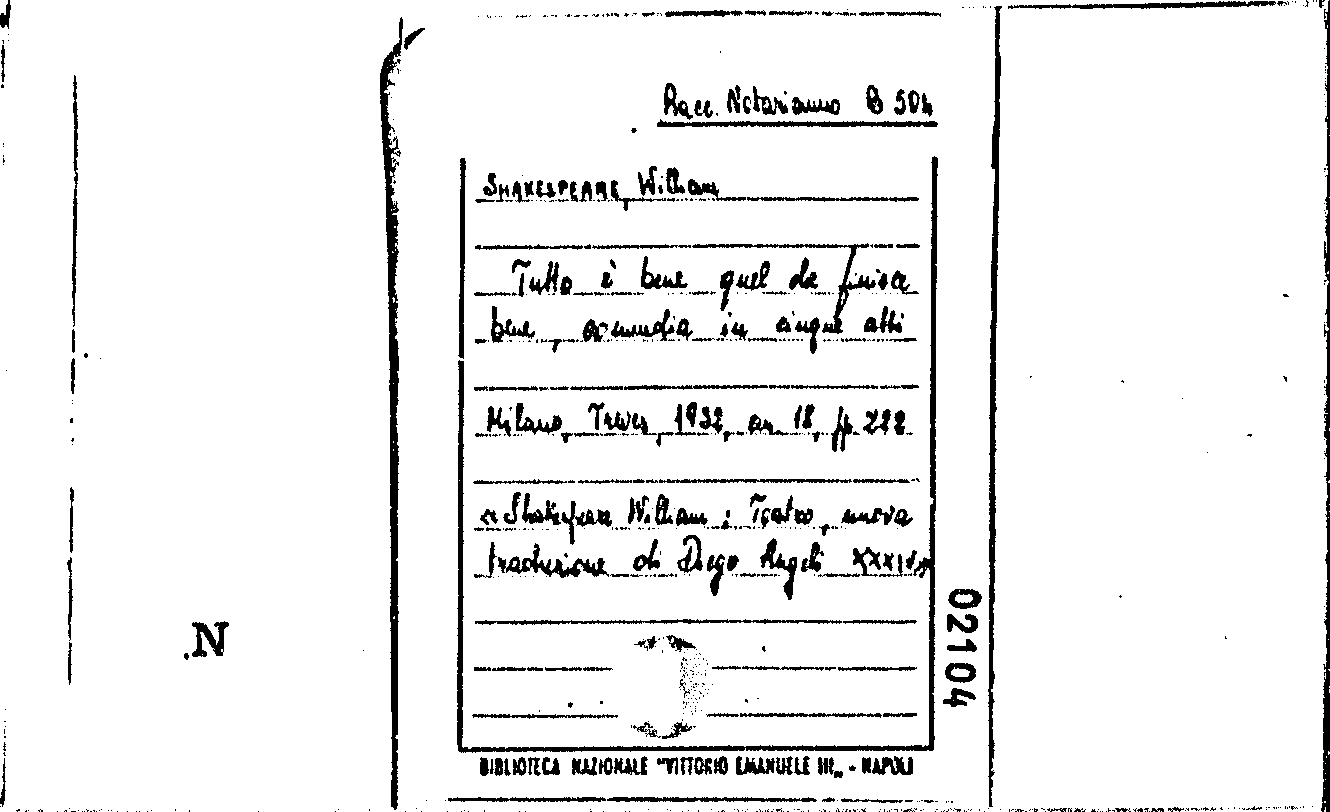 Racc. Notarianno B 504
SHAKESPEARE, William
Tutto è bene quel che finisce
bene, commedia in cinque atti
Milano, Treves, 1932, in 18, pp. 222
« Shakespeare William : Teatro, nuova
traduzione di Diego Angeli
.N
02104
BIBLIOTECA NAZIONALE "VITTORIO EMANUELE III„ - NAPOLI